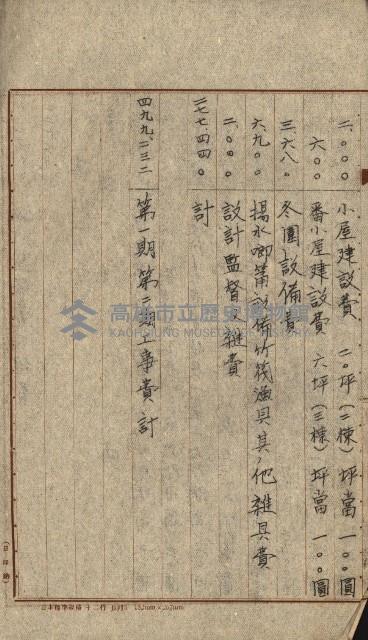 二、〇〇〇 小屋建設費 二〇坪(二棟) 坪當 一〇〇圓
六〇〇 番小屋建設費 六坪(三棟) 坪當 一〇〇圓
三、六八〇 冬圍設備費
六、九〇〇 揚水喞筒設備竹筏漁具其ノ他雜具費
二、〇〇〇 設計監督雜費
計
四九九、二三二 第一期第二期工事費計
高雄市立歷史博物館
KAOHSIUNG MUSEUM OF HISTORY